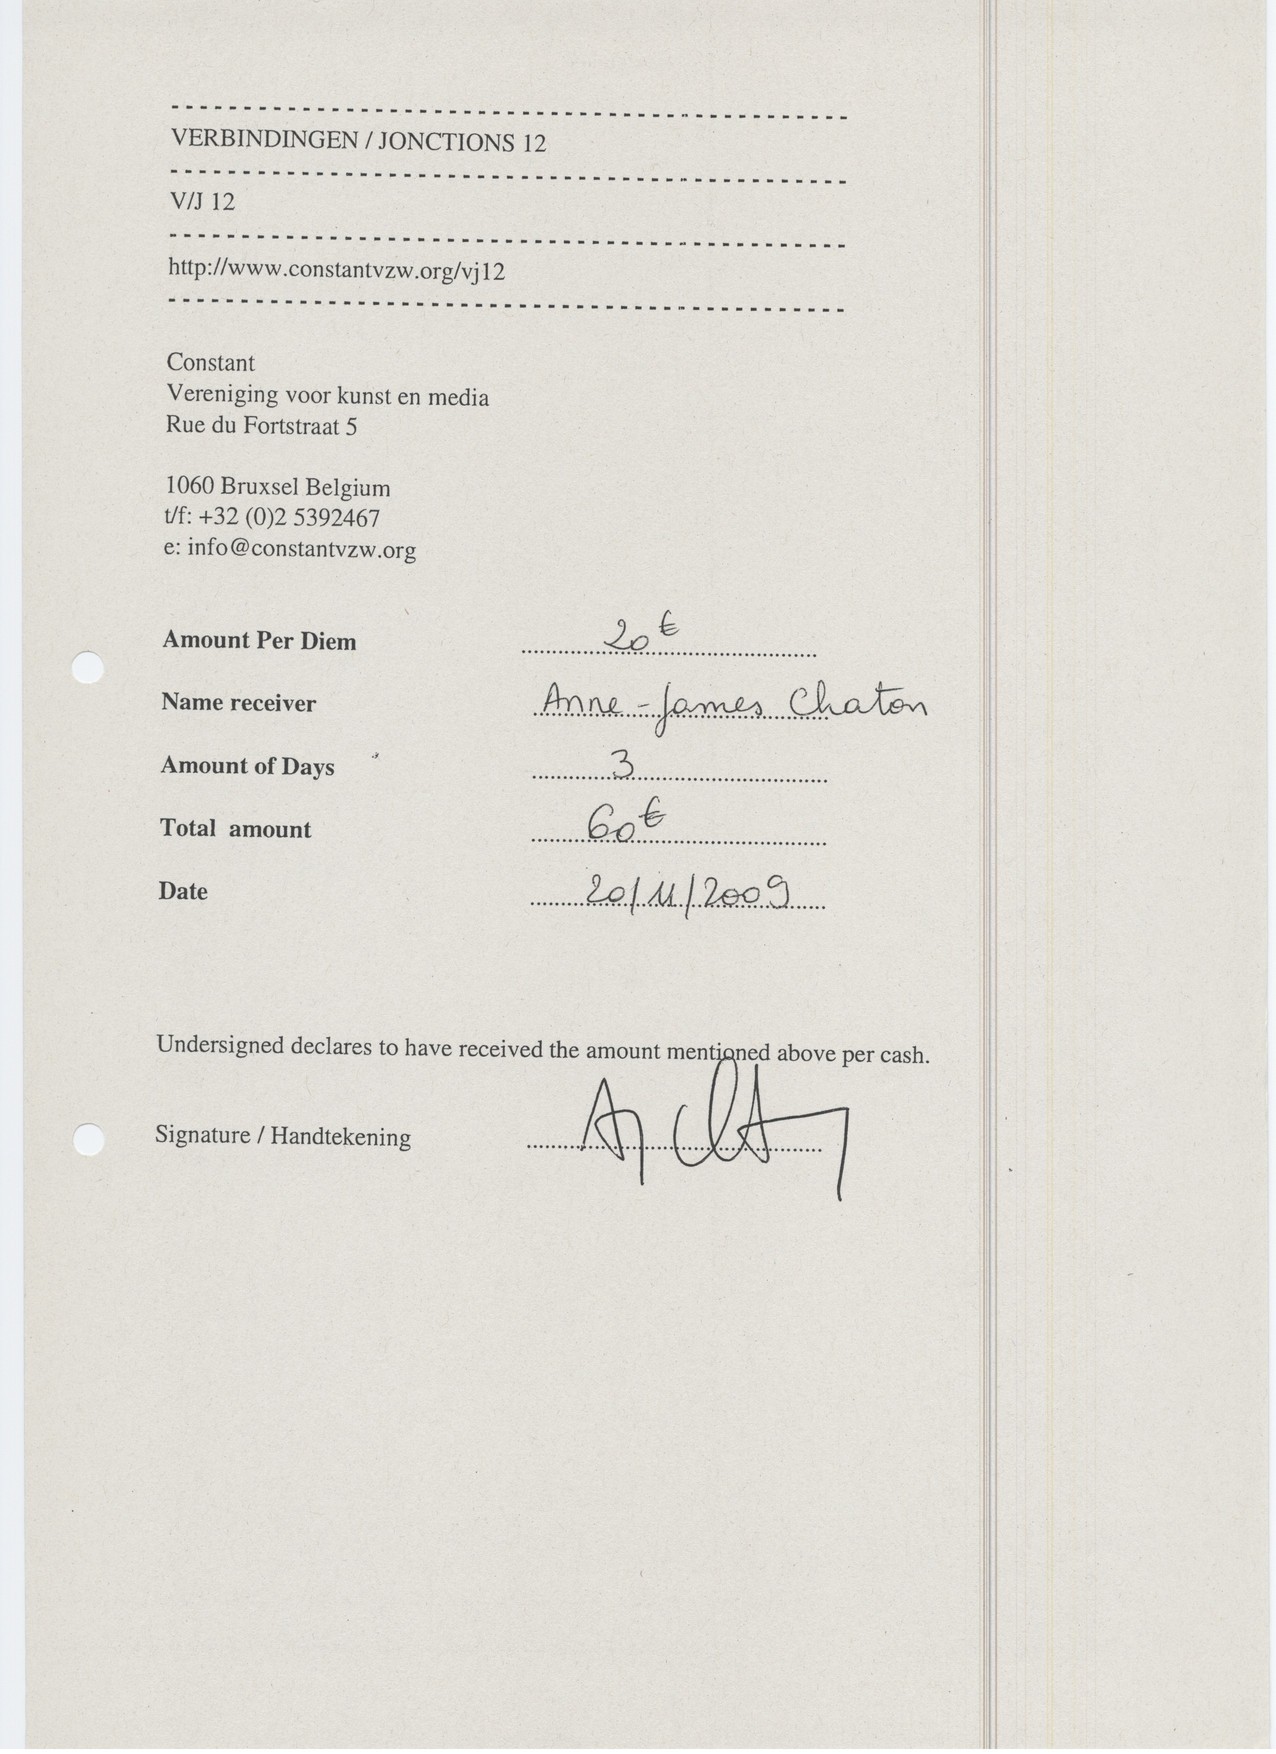 VERBINDINGEN / JONCTIONS 12
V/J 12
http://www.constantvzw.org/vj12
Constant
Vereniging voor kunst en media
Rue du Fortstraat 5
1060 Bruxsel Belgium
t/f: +32 (0)2 5392467
e: info@constantvzw.org
Amount Per Diem 20€
Name receiver Anne-James Chaton
Amount of Days 3
Total amount 60€
Date 20/11/2009
Undersigned declares to have received the amount mentioned above per cash.
Signature / Handtekening